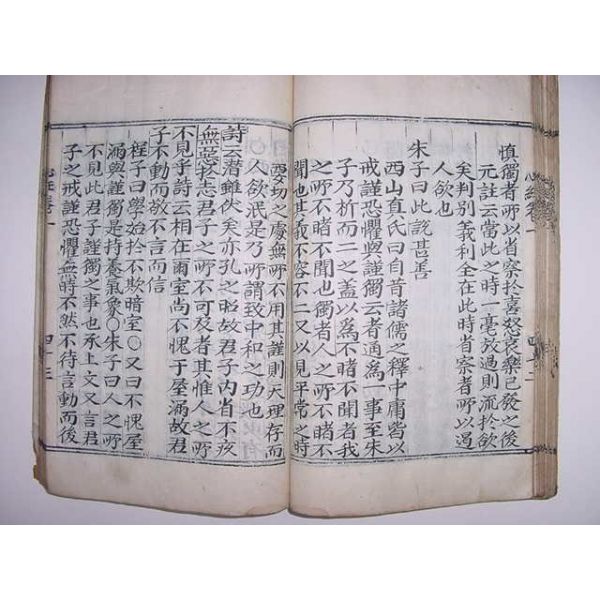 心經卷一
四十二
慎獨者所以省察於喜怒哀樂已發之後
元註云當此之時一毫放過則流於欲
矣判別義利全在此時省察者所以遏
人欲也
朱子曰此說甚善
西山真氏曰自昔諸儒之釋中庸皆以
戒謹恐懼與謹獨云者通為一事至朱
子乃析而二之蓋以為不睹不聞者我
之所不睹不聞也獨者人之所不睹不
聞也其義不容不二又以見平常之時
要切之處無所不用其謹則天理存而
人欲泯是乃所謂致中和之功也
詩云潛雖伏矣亦孔之昭故君子內省不疚
無惡於志君子之所不可及者其惟人之所
不見乎詩云相在爾室尚不愧于屋漏故君
子不動而敬不言而信
程子曰學始於不欺暗室○又曰不愧屋
漏與謹獨是持養氣象○朱子曰人之所
不見此君子謹獨之事也承上文又言君
子之戒謹恐懼無時不然不待言動而後
心經卷一
四十三